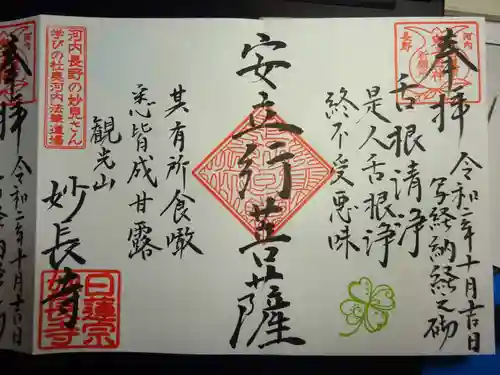 奉拝
令和二年十月吉日
写経納経之砌
舌根清浄
是人舌根浄
終不受悪味
安立行菩薩
其有所食噉
悉皆成甘露
観光山
妙長寺
河内長野の妙見さん
学びの杜奥河内法華道場
日蓮宗
妙長寺
河内
長野
奉拝
令和二年十月吉日